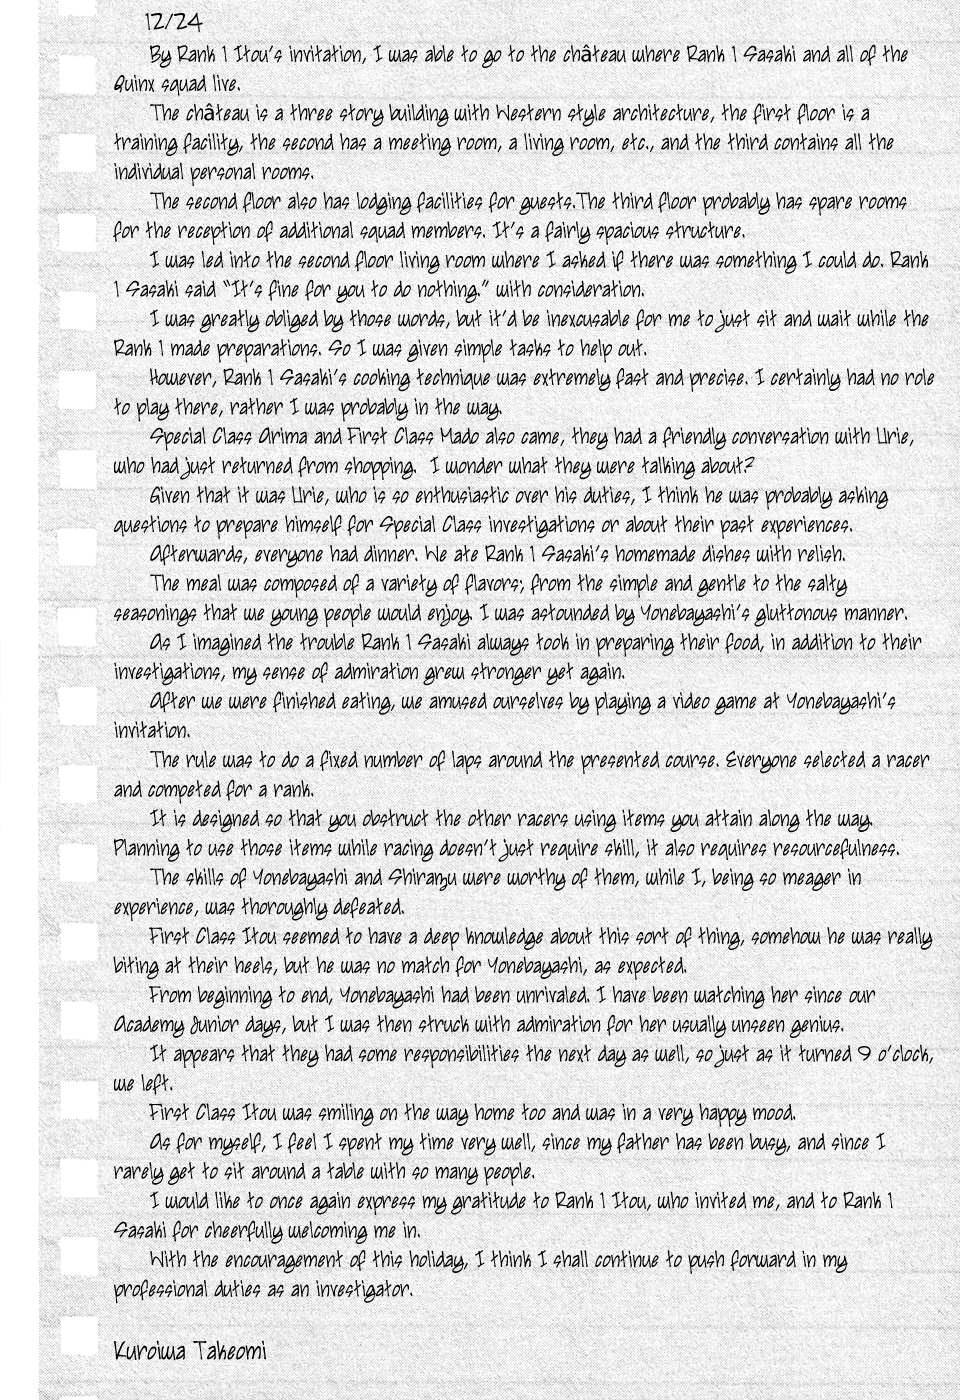 12/24
By Rank 1 Itou's invitation, I was able to go to the château where Rank 1 Sasaki and all of the
Quinx squad live.
The château is a three story building with Western style architecture, the first floor is a
training facility, the second has a meeting room, a living room, etc., and the third contains all the
individual personal rooms.
The second floor also has lodging facilities for guests.The third floor probably has spare rooms
for the reception of additional squad members. It's a fairly spacious structure.
I was led into the second floor living room where I asked if there was something I could do. Rank
1 Sasaki said "It's fine for you to do nothing." with consideration.
I was greatly obliged by those words, but it'd be inexcusable for me to just sit and wait while the
Rank 1 made preparations. So I was given simple tasks to help out.
However, Rank 1 Sasaki's cooking technique was extremely fast and precise. I certainly had no role
to play there, rather I was probably in the way.
Special Class Arima and First Class Mado also came, they had a friendly conversation with Urie,
who had just returned from shopping. I wonder what they were talking about?
Given that it was Urie, who is so enthusiastic over his duties, I think he was probably asking
questions to prepare himself for Special Class investigations or about their past experiences.
Afterwards, everyone had dinner. We ate Rank 1 Sasaki's homemade dishes with relish.
The meal was composed of a variety of flavors; from the simple and gentle to the salty
seasonings that we young people would enjoy. I was astounded by Yonebayashi's gluttonous manner.
As I imagined the trouble Rank 1 Sasaki always took in preparing their food, in addition to their
investigations, my sense of admiration grew stronger yet again.
After we were finished eating, we amused ourselves by playing a video game at Yonebayashi's
invitation.
The rule was to do a fixed number of laps around the presented course. Everyone selected a racer
and competed for a rank.
It is designed so that you obstruct the other racers using items you attain along the way.
Planning to use those items while racing doesn't just require skill, it also requires resourcefulness.
The skills of Yonebayashi and Shirazu were worthy of them, while I, being so meager in
experience, was thoroughly defeated.
First Class Itou seemed to have a deep knowledge about this sort of thing, somehow he was really
biting at their heels, but he was no match for Yonebayashi, as expected.
From beginning to end, Yonebayashi had been unrivaled. I have been watching her since our
Academy Junior days, but I was then struck with admiration for her usually unseen genius.
It appears that they had some responsibilities the next day as well, so just as it turned 9 o'clock,
we left.
First Class Itou was smiling on the way home too and was in a very happy mood.
As for myself, I feel I spent my time very well, since my father has been busy, and since I
rarely get to sit around a table with so many people.
I would like to once again express my gratitude to Rank 1 Itou, who invited me, and to Rank 1
Sasaki for cheerfully welcoming me in.
With the encouragement of this holiday, I think I shall continue to push forward in my
professional duties as an investigator.
Kuroiwa Takeomi